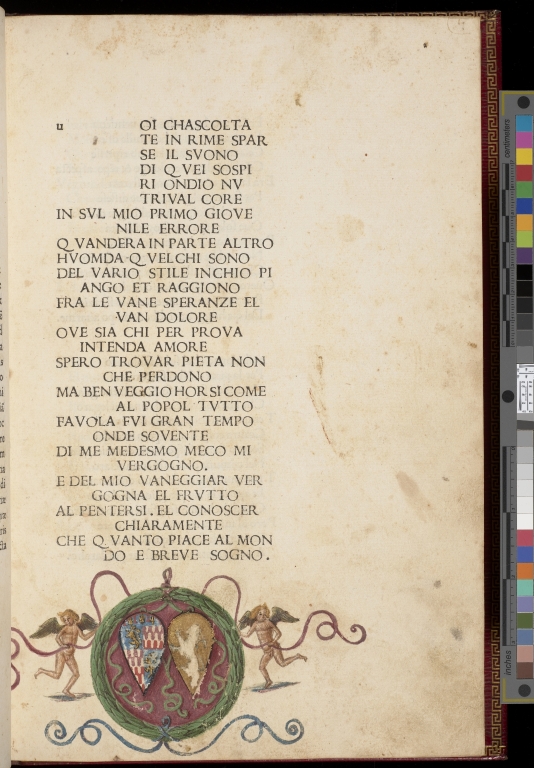 u OI CHASCOLTA
TE IN RIME SPAR
SE IL SVONO
DI QVEI SOSPI
RI ONDIO NV
TRIVAL CORE
IN SVL MIO PRIMO GIOVE
NILE ERRORE
QVANDERA IN PARTE ALTRO
HVOMDA QVELCHI SONO
DEL VARIO STILE INCHIO PI
ANGO ET RAGGIONO
FRA LE VANE SPERANZE EL
VAN DOLORE
OVE SIA CHI PER PROVA
INTENDA AMORE
SPERO TROVAR PIETA NON
CHE PERDONO
MA BEN VEGGIO HOR SI COME
AL POPOL TVTTO
FAVOLA FVI GRAN TEMPO
ONDE SOVENTE
DI ME MEDESMO MECO MI
VERGOGNO.
E DEL MIO VANEGGIAR VER
GOGNA EL FRVTTO
AL PENTERSI. EL CONOSCER
CHIARAMENTE
CHE QVANTO PIACE AL MON
DO E BREVE SOGNO.
centimeters
inches